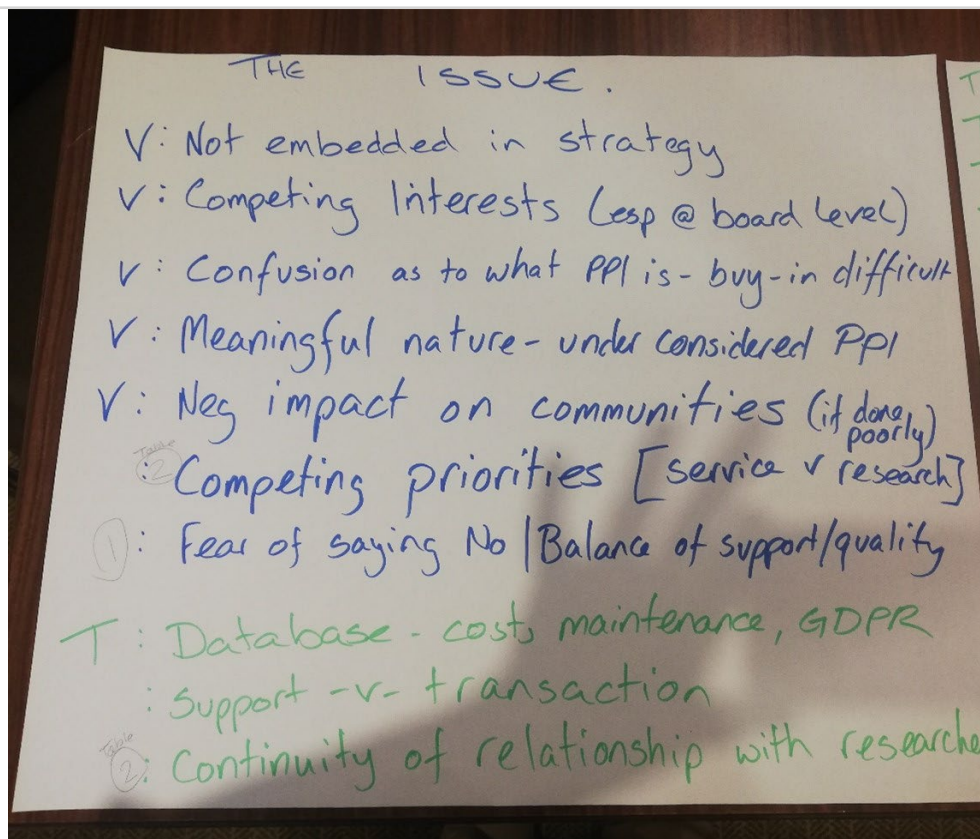 THE ISSUE.
V: Not embedded in strategy
V: Competing Interests (esp @ board level)
V: Confusion as to what PPI is - buy-in difficult
V: Meaningful nature - under considered PPI
V: Neg impact on communities (if done poorly)
Table 2 : Competing priorities [service v research]
1 : Fear of saying No / Balance of support/quality
T: Database - cost, maintenance, GDPR
: Support -v- transaction
Table 2 : Continuity of relationship with researche